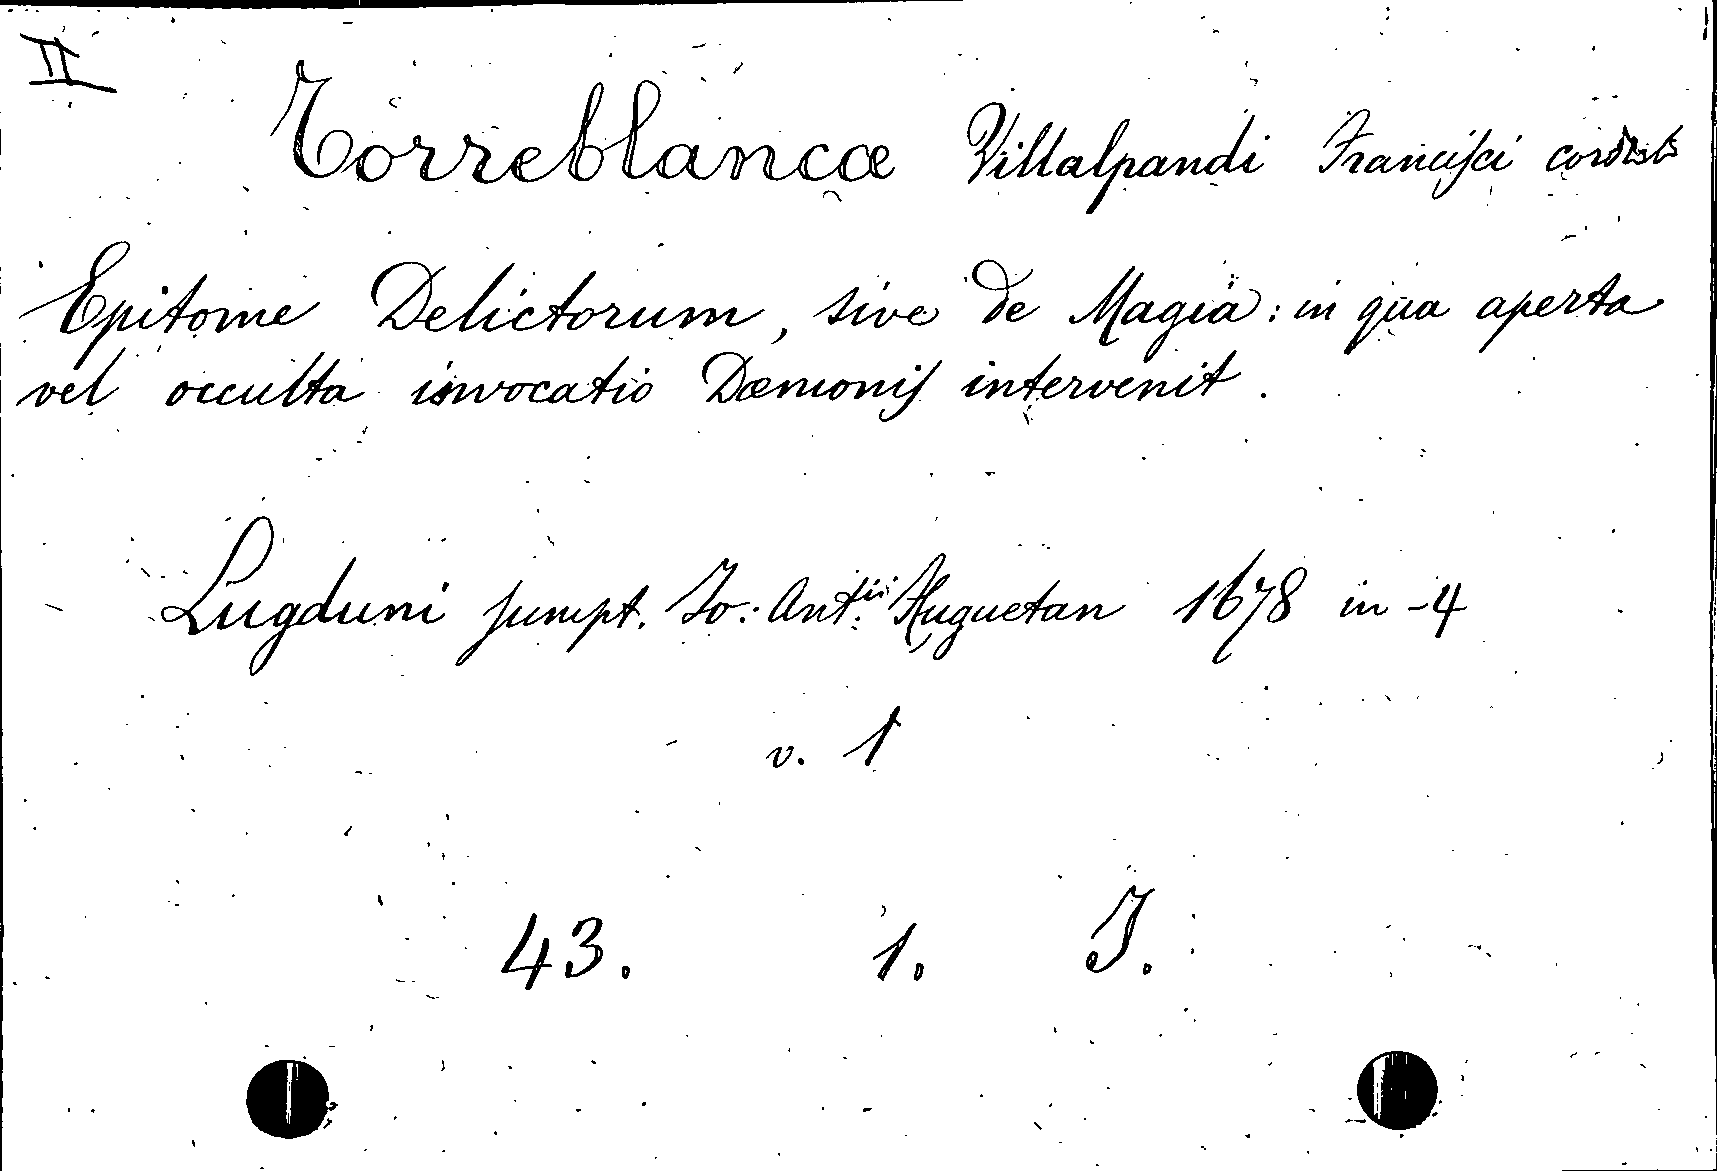 II
Torreblancæ Villalpandi Francisci
Epitome Delictorum, sive de Magia: in qua aperta
vel occulta invocatio Dæmonis intervenit.
Lugduni sumpt. Io: Ant.ii Huguetan 1678 in-4
v. 1
43. 1. I.